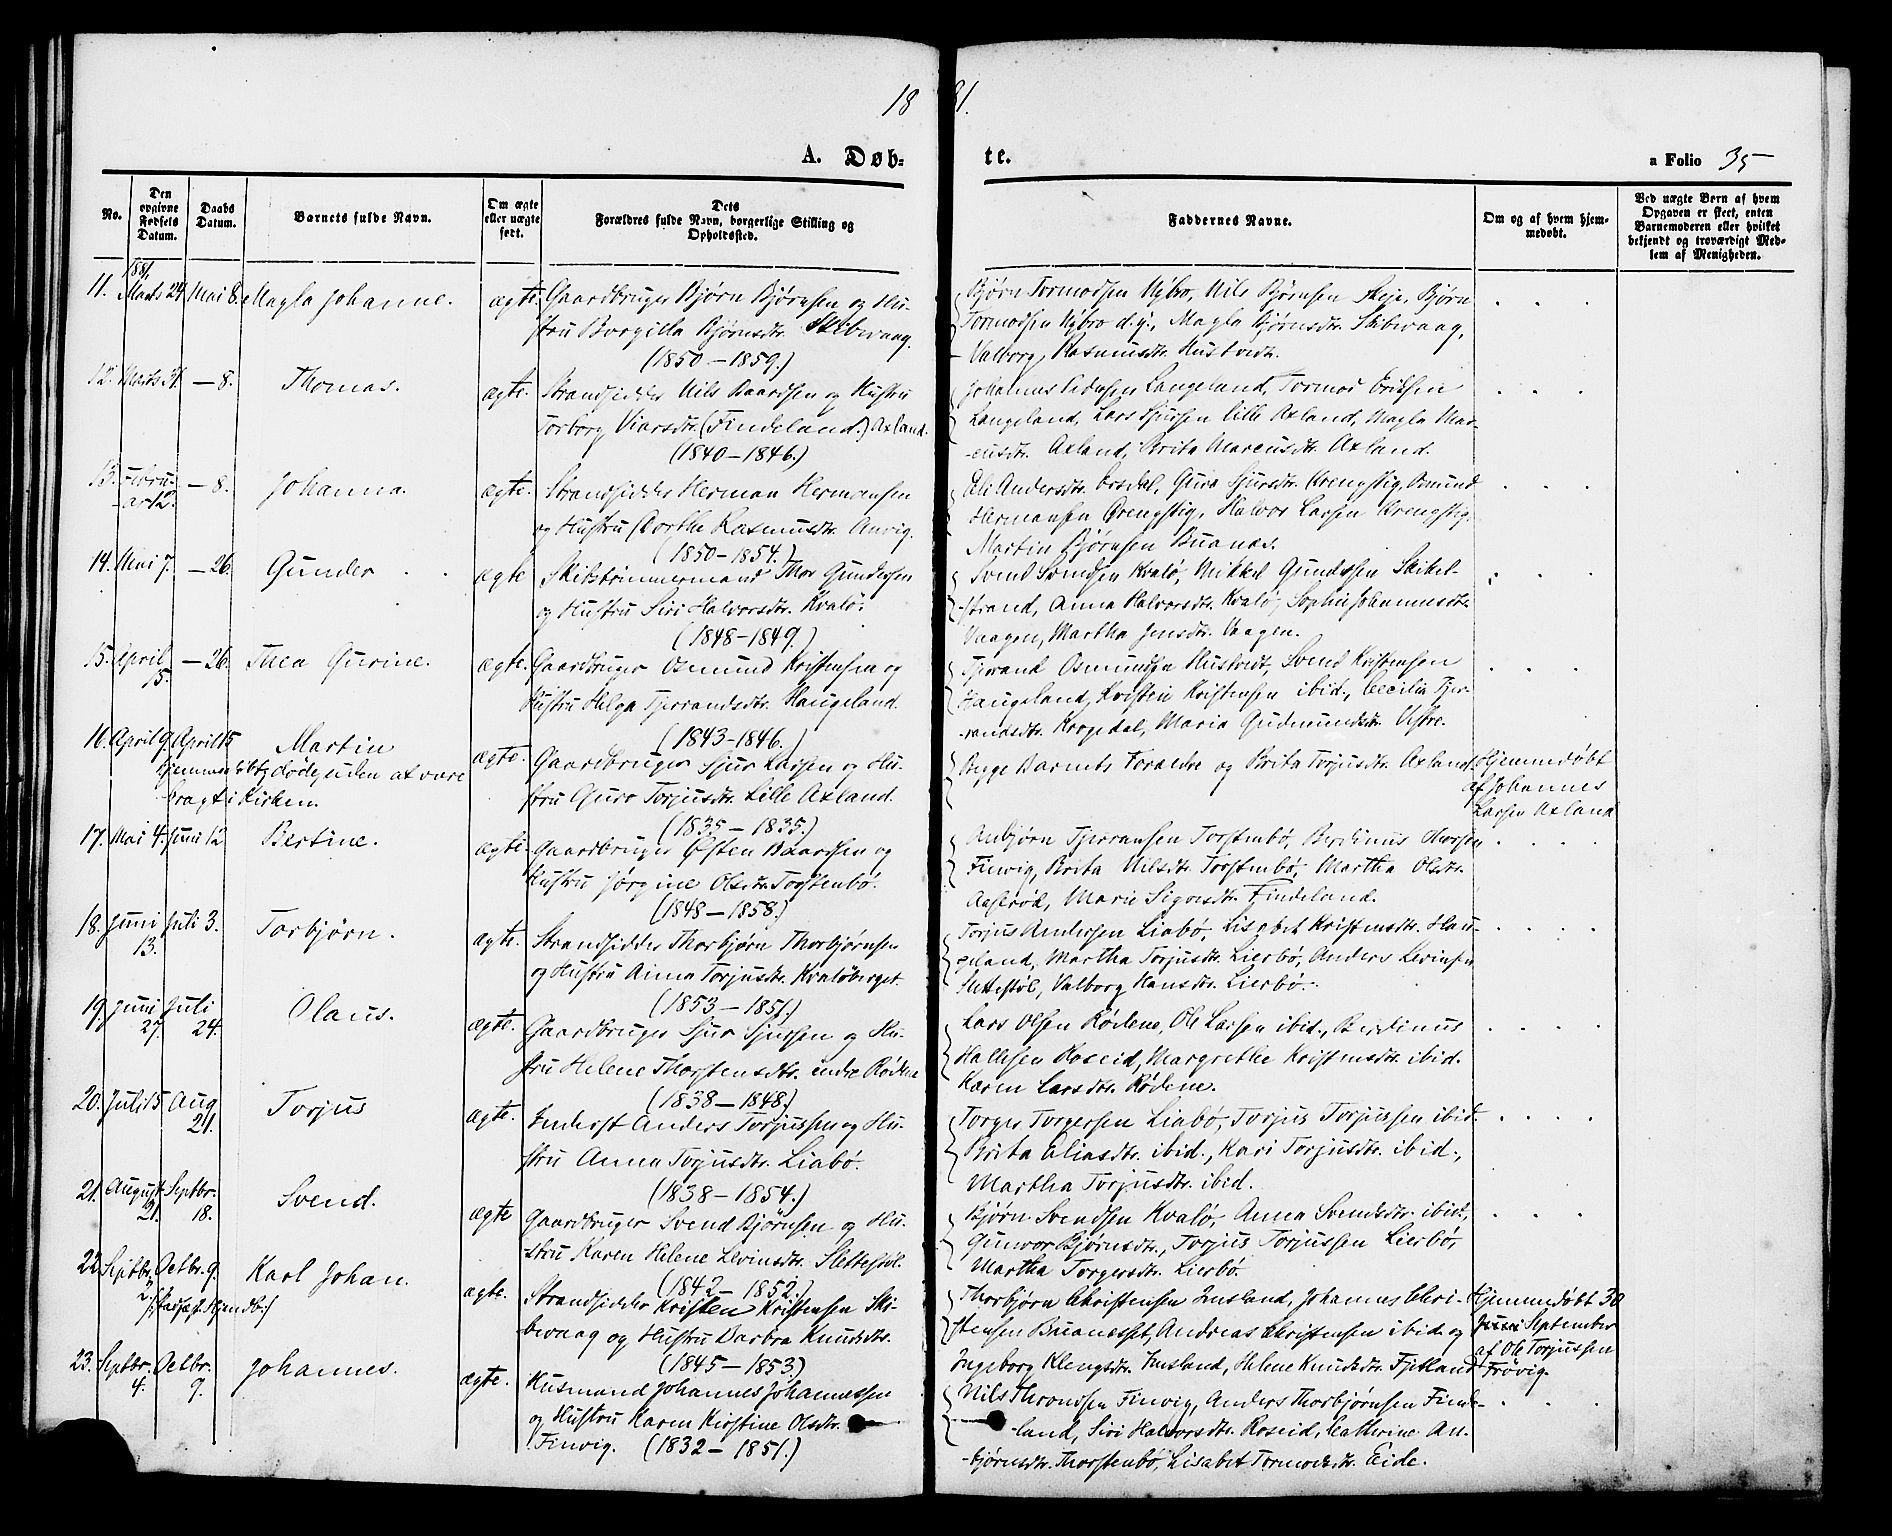 1881.
A. Døb-
te.
a Folio 35
No.
Den opgivne Fødsels Datum.
Daabs Datum.
Barnets fulde Navn.
Om ægte eller uægte født.
Dets Forældres fulde Navn, borgerlige Stilling og Opholdssted.
Faddernes Navne.
Om og af hvem hjemmedøbt.
Ved uægte Børn af hvem Opgaven er skeet, enten Barnemoderen eller hvilket bekjendt og troværdigt Medlem af Menigheden.
11. 1881. Marts 24 Mai 8. Magla Johanne. ægte. Gaardbruger Bjørn Bjørnsen og Hu-
stru Borgilla Bjørnsdtr. Skibevaag.
(1850 - 1859.)
Bjørn Tormodsen Nybro, Nils Bjørnsen Skeje, Bjørn
Tormodsen Nybro d.y., Magla Bjørnsdtr. Skibevaag,
Valborg Rasmusdtr. Hustvedt.
12. Marts 31. - 8. Thomas. ægte. Strandsidder Nils Baardsen og Hustru
Torborg Viarsdtr. (Findeland.) Axland.
(1840 - 1846.)
Johannes Langeland, Tormod Eriksen
Langeland, Lars Sjursen Lille Axland, Magla Mar-
cusdtr. Axland, Brita Marcusdtr. Axland.
13. Febru-
ar 12. - 8. Johanna. ægte. Strandsidder Herman Hermansen
og Hustru Dorthe Rasmusdtr. Anvig.
(1850 - 1854.)
Eli Andersdtr. Ersdal, Guro Sjursdtr. Krengstig, Osmund
Hermansen Krengstig, Halvor Larsen Krengstig,
Martin Bjørnsen Buanæs.
14. Mai 7. - 26. Gunder ægte Skibstømmermand Thor Gundersen
og Hustru Siri Halvorsdtr. Kvalø.
(1848 - 1849.)
Svend Svendsen Kvalø, Mikkel Gundersen Skibel-
strand, Anna Halvorsdtr. Kvalø, Sophie Johannesdtr.
Vaagen, Martha Jensdtr. Vaagen.
15. April 15. - 26. Thea Gurine. ægte. Gaardbruger Osmund Kristensen og
Hustru Helga Tjerrandsdtr. Haugeland.
(1843 - 1846.)
Tjerand Osmundsen Hustvedt, Svend Kristensen
Haugeland, Kristen Kristensen ibid., Cecilia Tjer-
randsdtr. Krogedal, Maria Gudmundsdtr. Vestre.
16. April 9. April 15 Martin ægte. Gaardbruger Sjur Larsen og Hu-
stru Guro Torjusdtr. Lille Axland.
(1835 - 1835.)
Hjemmedøbt, døde uden at være
bragt i Kirken.
Begge Barnets Forældre og Brita Torjusdtr. Axland.
Hjemmedøbt
af Johannes
Larsen Axland
17. Mai 4. Juni 12 Bertine. ægte. Gaardbruger Østen Baardsen og
Hustru Jørgine Olsdtr. Torstenbø.
(1848 - 1858.)
Anbjørn Tjerransen Torstenbø, Berdinus Thorsen
Finvig, Brita Nilsdtr. Torstenbø, Martha Olsdtr.
Aastrød, Marie Sigvesdtr. Findeland.
18. Juni 13. Juli 3. Torbjørn. ægte. Strandsidder Thorbjørn Thorbjørnsen
og Hustru Anna Torjusdtr. Kvaløberget.
(1853 - 1851.)
Torjus Andersen Liabø, Lisabet Kristensdtr. Hau-
geland, Martha Torjusdtr. Lierbø, Anders Levinsen
Slettestøl, Valborg Hansdtr. Lierbø.
19. Juni 27. Juli 24. Olaus. ægte. Gaardbruger Sjur Sjursen og Hu-
stru Helene Thorstensdtr. indre Rødene
(1838 - 1848.)
Lars Olsen Rødene, Ole Larsen ibid., Berdinus
Hallesen Roseid, Margrethe Kristensdtr. ibid.
Karen Larsdtr. Rødene.
20. Juli 15 Aug 21. Torjus ægte. Inderst Anders Torjussen og Hu-
stru Anna Torjusdtr. Liabø.
(1838 - 1854.)
Torger Torgersen Liabø, Torjus Torjussen ibid.
Brita Eliasdtr. ibid., Kari Torjusdtr. ibid.,
Martha Torjusdtr. ibid.
21. August 21. Septbr. 18. Svend. ægte Gaardbruger Svend Bjørnsen og Hu-
stru Karen Helene Levinsdtr. Slettestøl.
(1842 - 1852.)
Bjørn Svendsen Kvalø, Anna Svendsdtr. ibid.,
Gunvor Bjørnsdtr., Torjus Torjussen Lierbø,
Martha Torgersdtr. Lierbø.
22 Septbr. 2. Octbr. 9. Karl Johan. ægte. Strandsidder Kristen Kristensen Ski-
bevaag og Hustru Barbra Knudsdtr.
(1845 - 1853)
Thorbjørn Christensen Imsland, Johannes Chri-
stensen Buanesset, Andreas Christensen ibid. og
Ingeborg Klengsdtr. Imsland, Helene Knudsdtr. Fjetland
Hjemmedøbt 30
Juni September
af Ole Torjussen
Frøvig.
23. Septbr. 4. Octbr. 9. Johannes. ægte. Husmand Johannes Johannessen
og Hustru Karen Kirstine Olsdtr.
Finvig. (1832 - 1851.)
Nils Throndsen Finvig, Anders Thorbjørnsen Finde-
land, Siri Halvorsdtr. Roseid, Cathrine An-
bjørnsdtr. Thorstenbø, Lisabet Tormodsdtr. Eide.